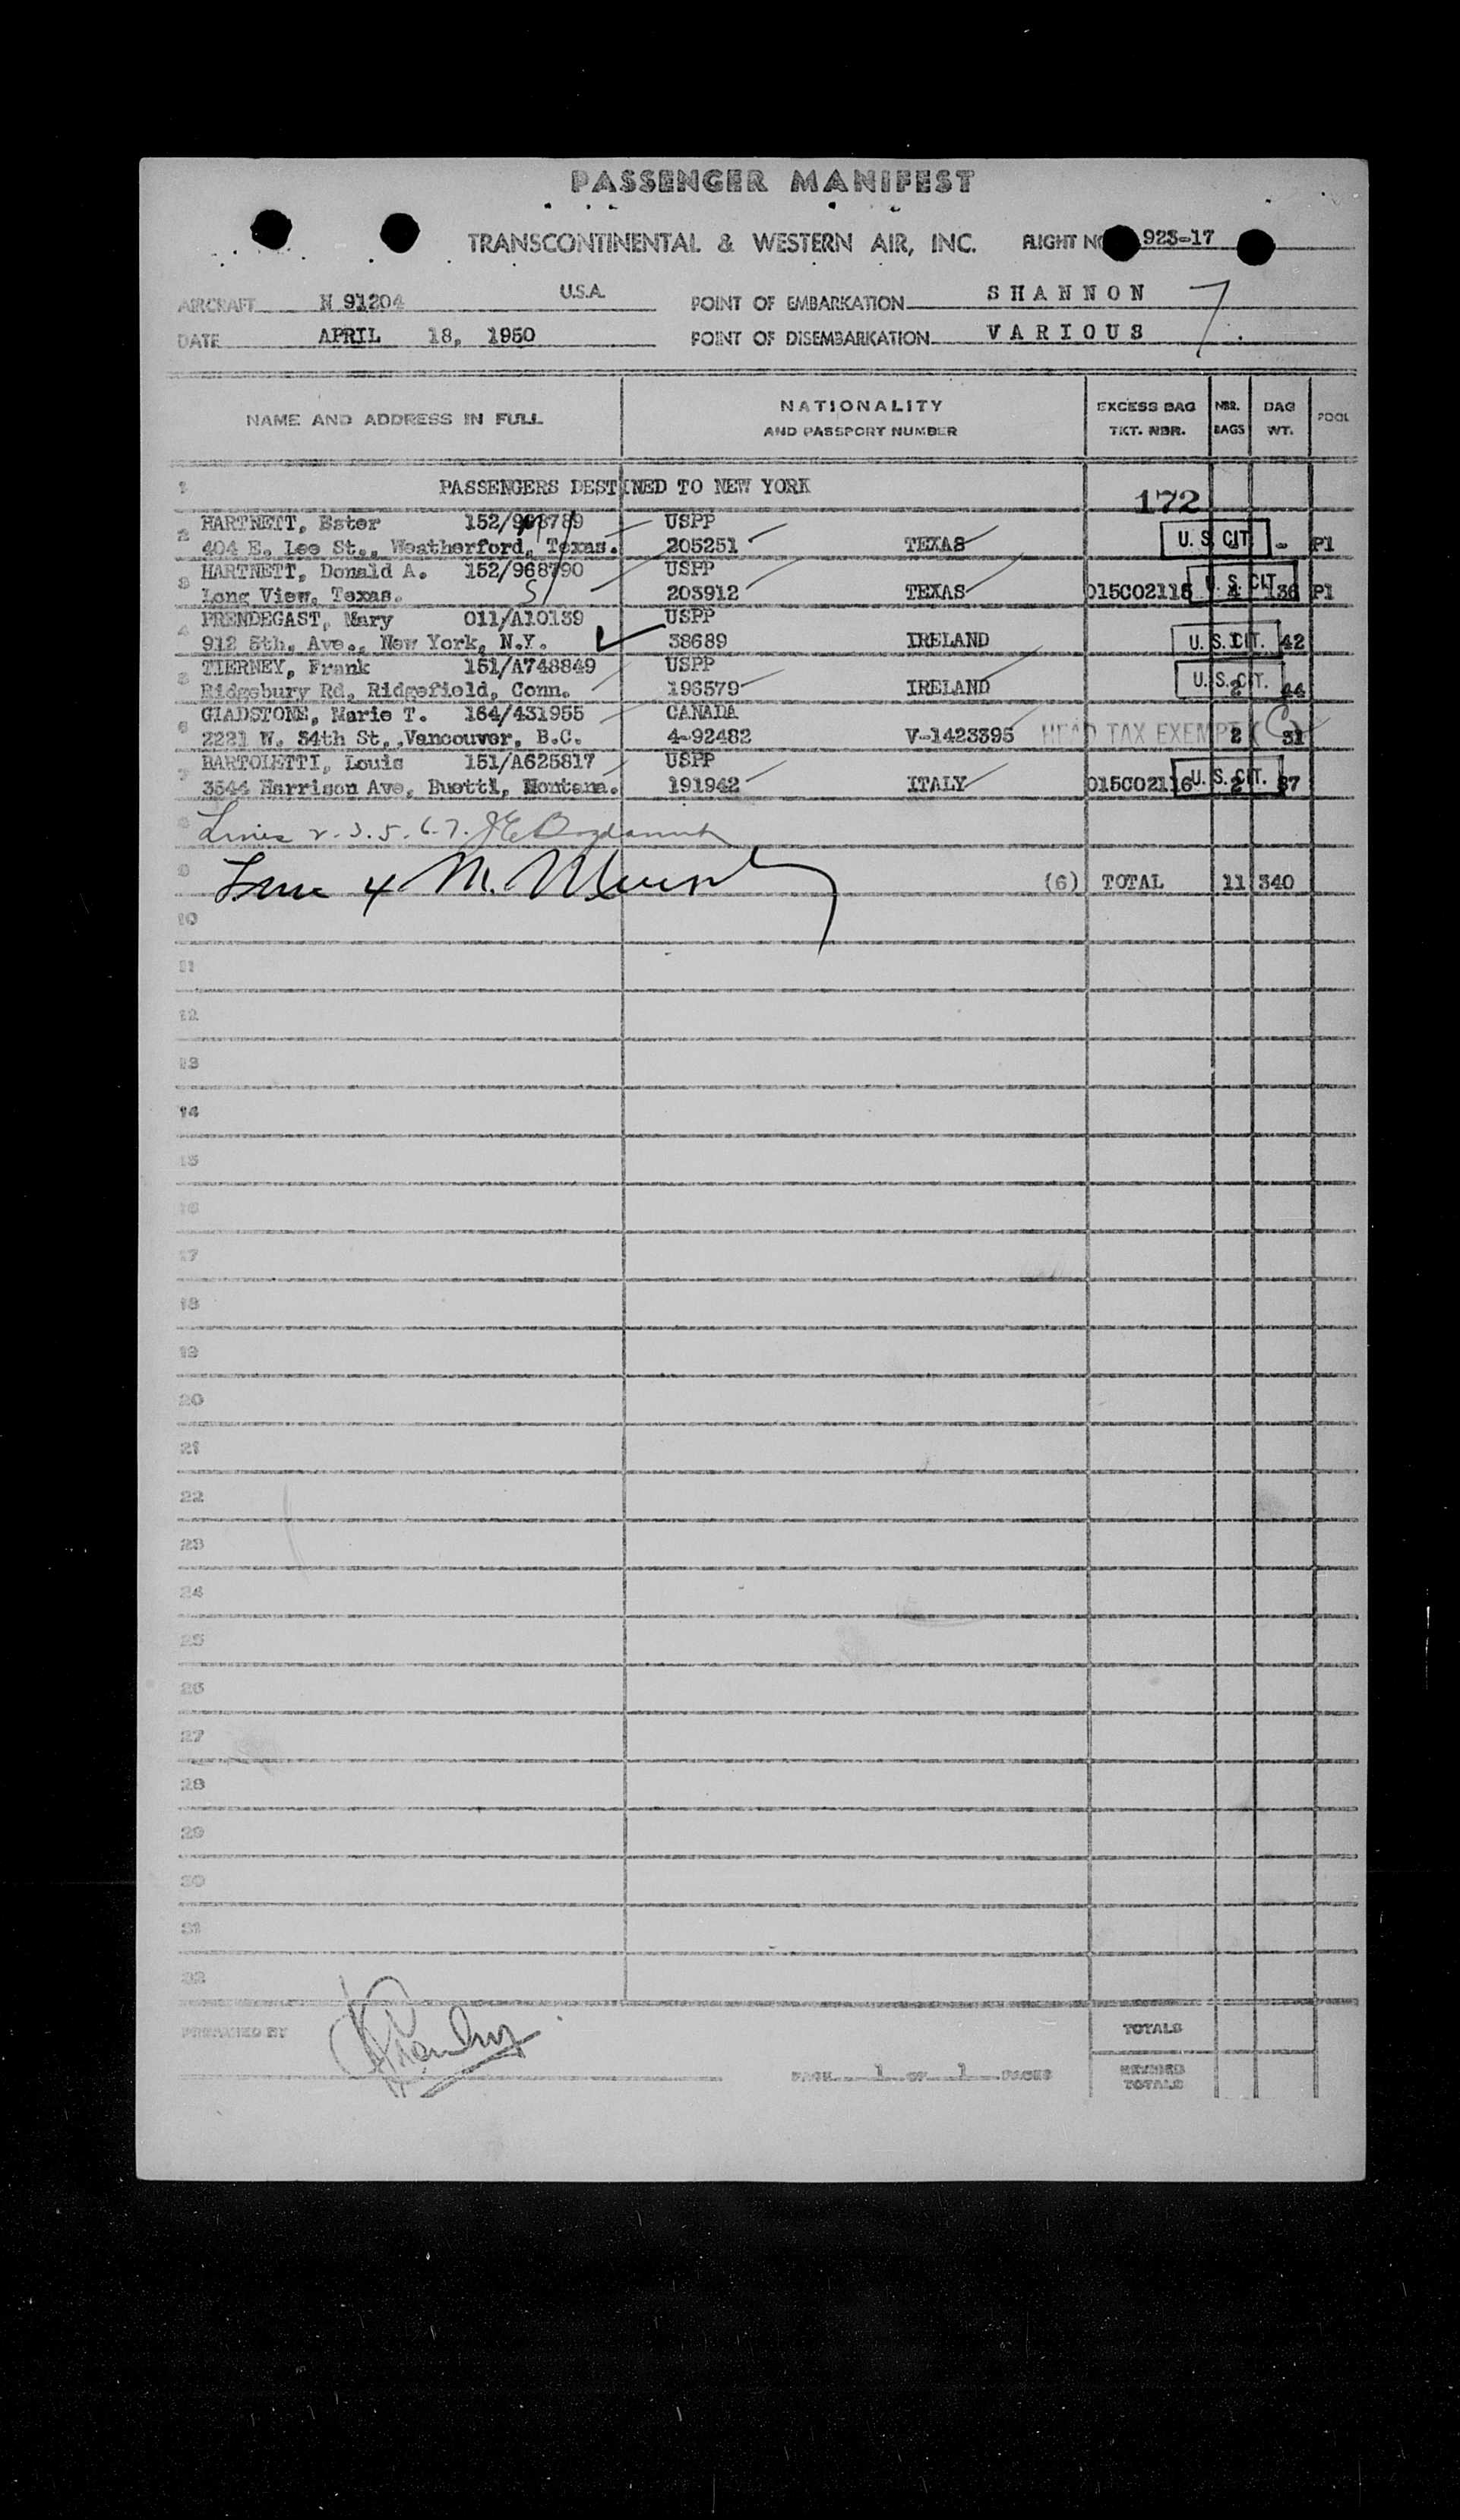 PASSENGER MANIFEST
TRANSCONTINENTAL & WESTERN AIR, INC. FLIGHT NO 923-17
AIRCRAFT N 91204 U.S.A. POINT OF EMBARKATION SHANNON
DATE APRIL 18, 1950 POINT OF DISEMBARKATION VARIOUS
NAME AND ADDRESS IN FULL NATIONALITY AND PASSPORT NUMBER EXCESS BAG TKT. NBR. NBR. BAGS BAG WT. POOL
1 PASSENGERS DESTINED TO NEW YORK
172
2 HARTNETT, Ester 152/968789 USPP
404 E. Lee St., Weatherford, Texas. 205251 TEXAS U. S. CIT. - P1
3 HARTNETT, Donald A. 152/968790 USPP
Long View, Texas. 203912 TEXAS 015C02115 U. S. CIT. 4 136 P1
4 PRENDEGAST, Mary 011/A10139 USPP
912 5th. Ave., New York, N.Y. 38689 IRELAND U. S. CIT. 1 42
5 TIERNEY, Frank 151/A748849 USPP
Ridgebury Rd, Ridgefield, Conn. 196579 IRELAND U. S. CIT. 2 44
6 GLADSTONE, Marie T. 164/431955 CANADA
2221 W. 34th St,.Vancouver, B.C. 4-92482 V-1423395 HEAD TAX EXEMPT 2 31
7 BARTOLETTI, Louis 151/A625817 USPP
3544 Harrison Ave, Buetti, Montana. 191942 ITALY 015C02116 U. S. CIT. 2 87
8 Lines 2.3.5.6.7.
9 Line 4 M. Murphy (6) TOTAL 11 340
10
11
12
13
14
15
16
17
18
19
20
21
22
23
24
25
26
27
28
29
30
31
32
PREPARED BY TOTALS
PAGE 1 OF 1 PAGES REVISED TOTALS